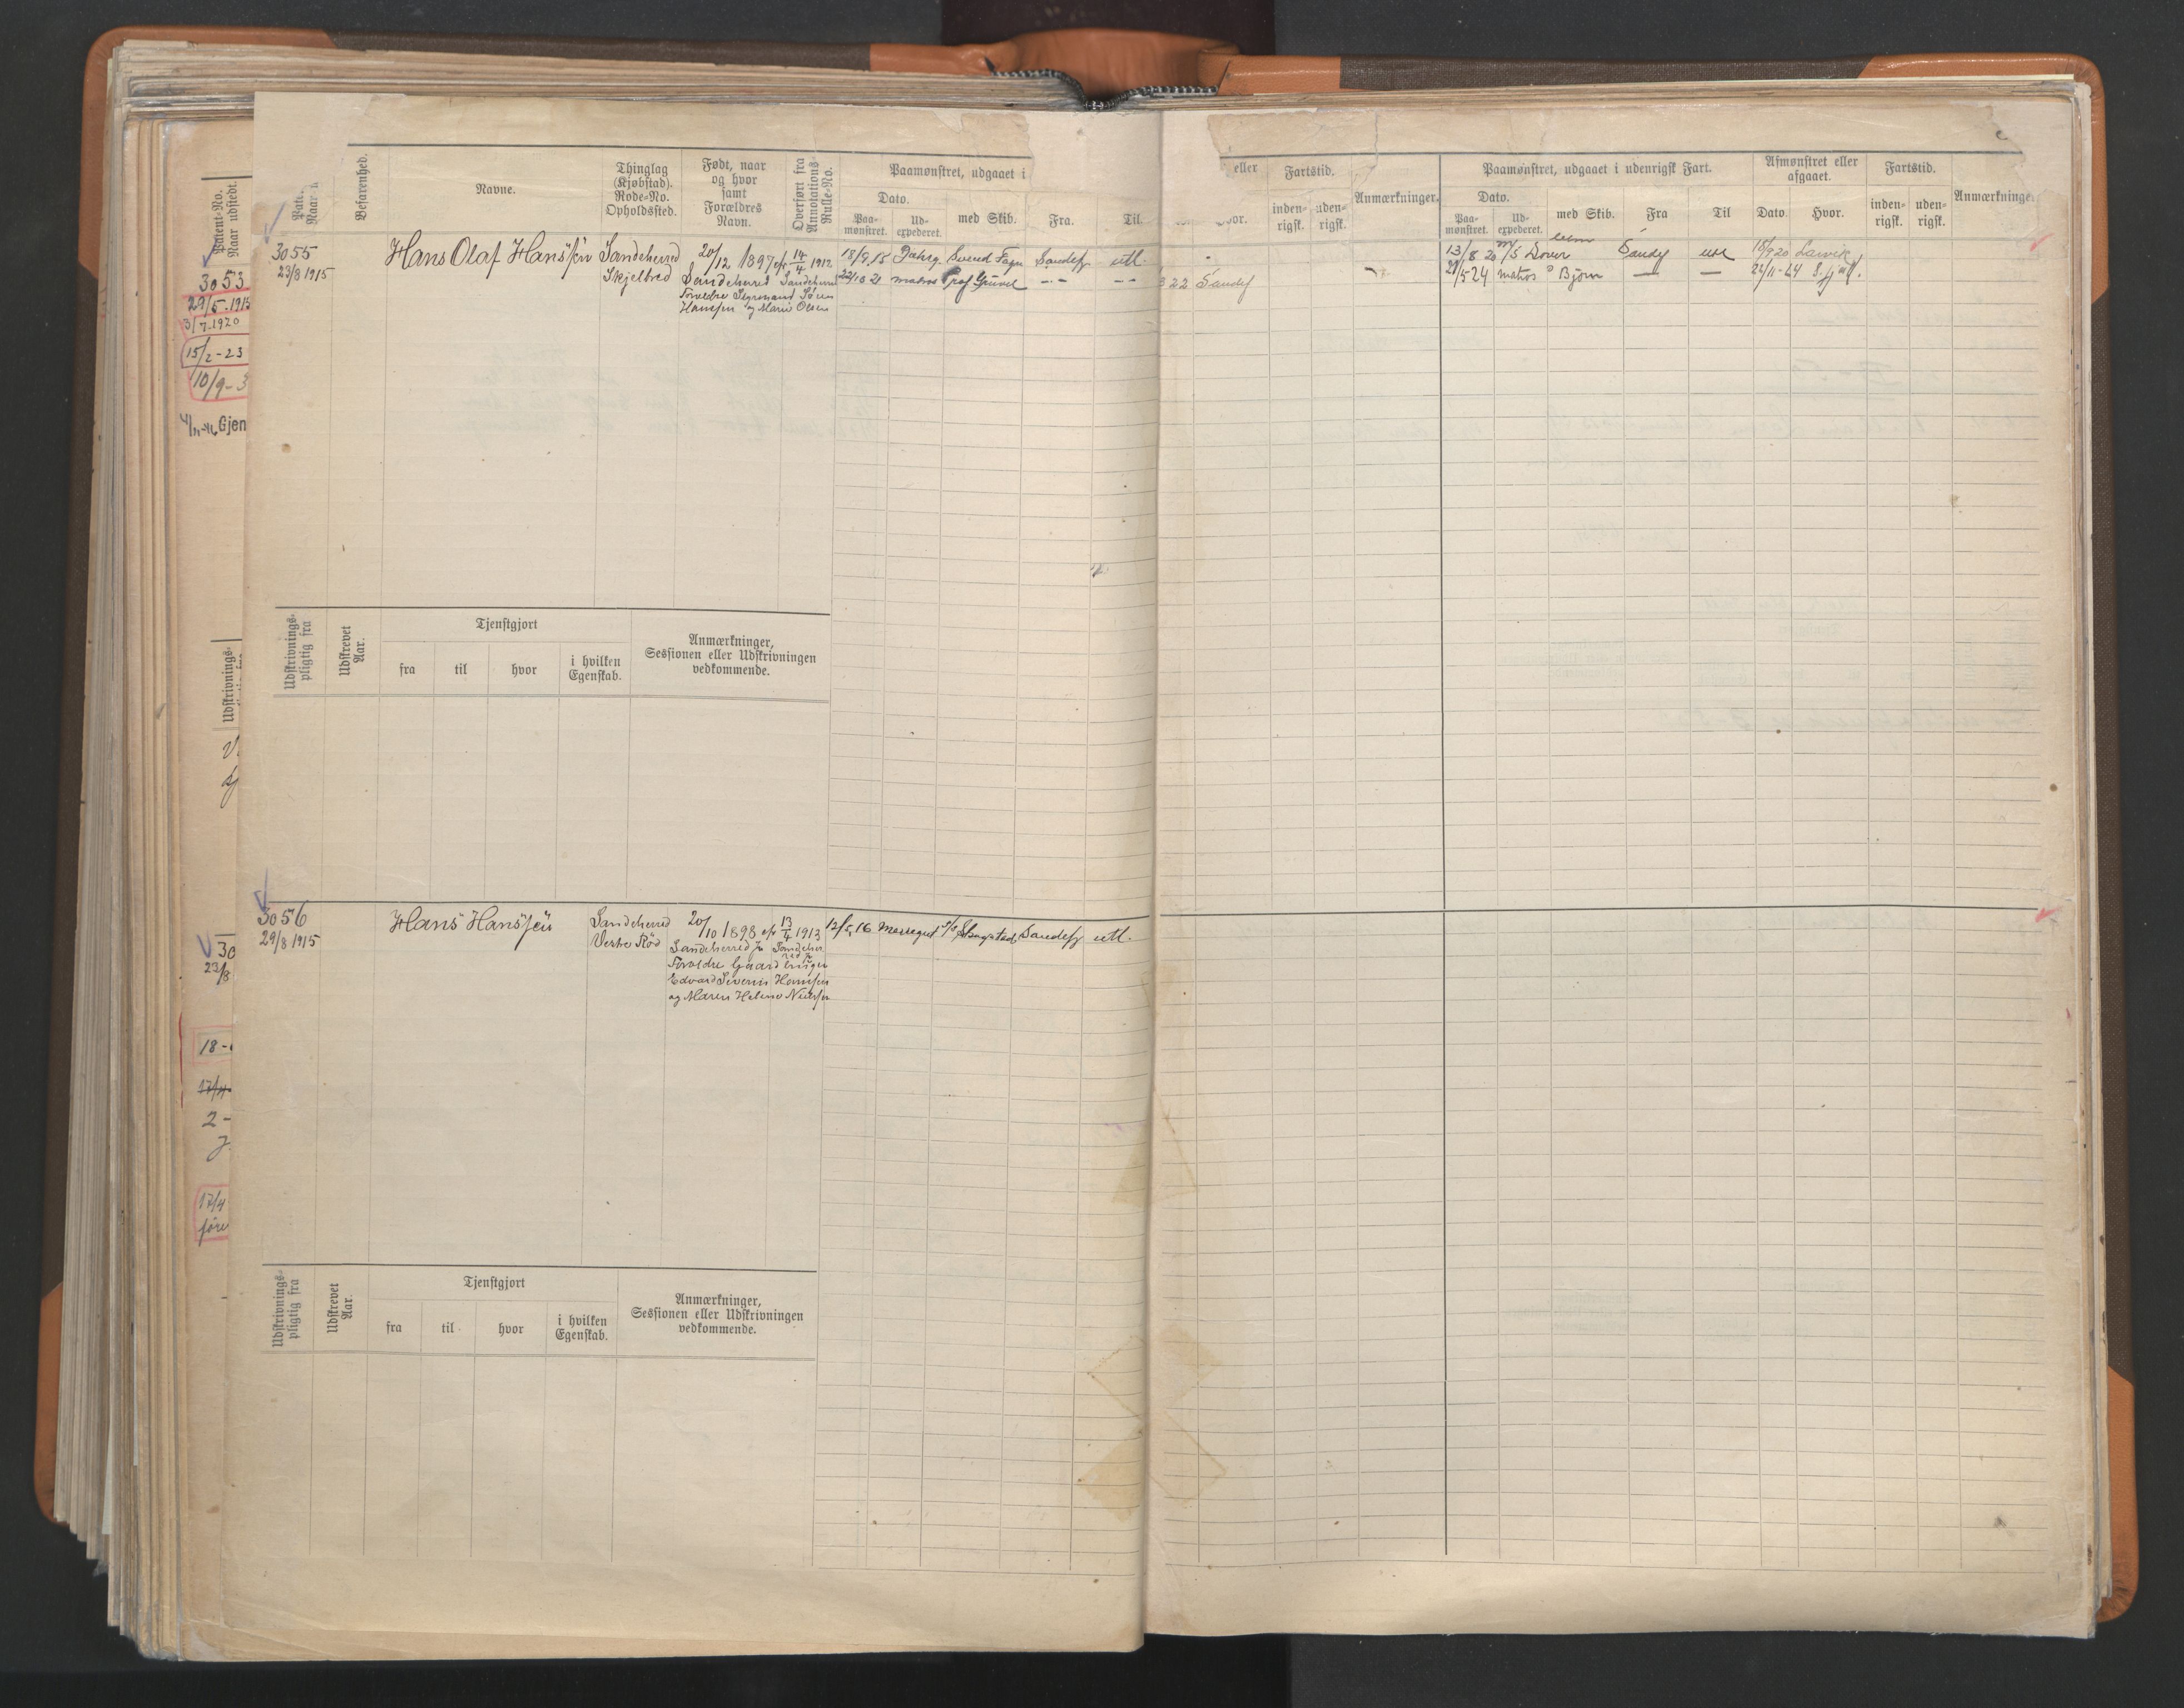 Patent-No.
Naar udstedt.
3053
29/5-1915
3/7-1920
15/2-23
10/9-3
Gjen
Udskrivnings-
30
23/8
18-
17/4
2-
17/4
Befarenhed.
Navne.
Thinglag
(Kjøbstad).
Rode-No.
Opholdssted.
Født, naar
og hvor
samt
Forældres
Navn.
Overført fra
Annotations-
Rulle-No.
Paamønstret, udgaaet i
Dato.
Paa-
mønstret.
Ud-
expederet.
med Skib.
Fra.
Til.
3055
23/8 1915
Hans Olaf Hanssen
Sandeherred
Skjelbred
20/12 1897
Sandeherred
Forældre Styrmand Søren
Hanssen og Marie Olsen
14/4 1912
Sandeherred
18/9 15 Svend Foyn Sandefj utl.
22/10 21 matros Prof Gruvel -"- -"-
Udskrivnings-
pligtig fra
Udskrevet
Aar.
Tjenstgjort
fra
til
hvor
i hvilken
Egenskab.
Anmærkninger,
Sessionen eller Udskrivningen
vedkommende.
3056
29/8 1915
Hans Hanssen
Sandeherred
Vestre Rød
20/10 1898
Sandeherred
Forældre Gaardbruger
Edvard Severin Hanssen
og Maren Helene
13/4 1913
12/5 16 Messegut Sandefj utl.
Udskrivnings-
pligtig fra
Udskrevet
Aar.
Tjenstgjort
fra
til
hvor
i hvilken
Egenskab.
Anmærkninger,
Sessionen eller Udskrivningen
vedkommende.
eller
Fartstid.
inden-
rigsk.
uden-
rigsk.
Anmærkninger.
Paamønstret, udgaaet i udenrigsk Fart.
Dato.
Paa-
mønstret.
Ud-
expederet.
med Skib.
Fra
Til
Afmønstret eller
afgaaet.
Dato.
Hvor.
Fartstid.
inden-
rigsk.
uden-
rigsk.
Anmærkninge
22 Sandefj
13/8 20 Sandefj utl 18/9 20 Larvik
21/5 24 matros Bjørn — — 22/11-24